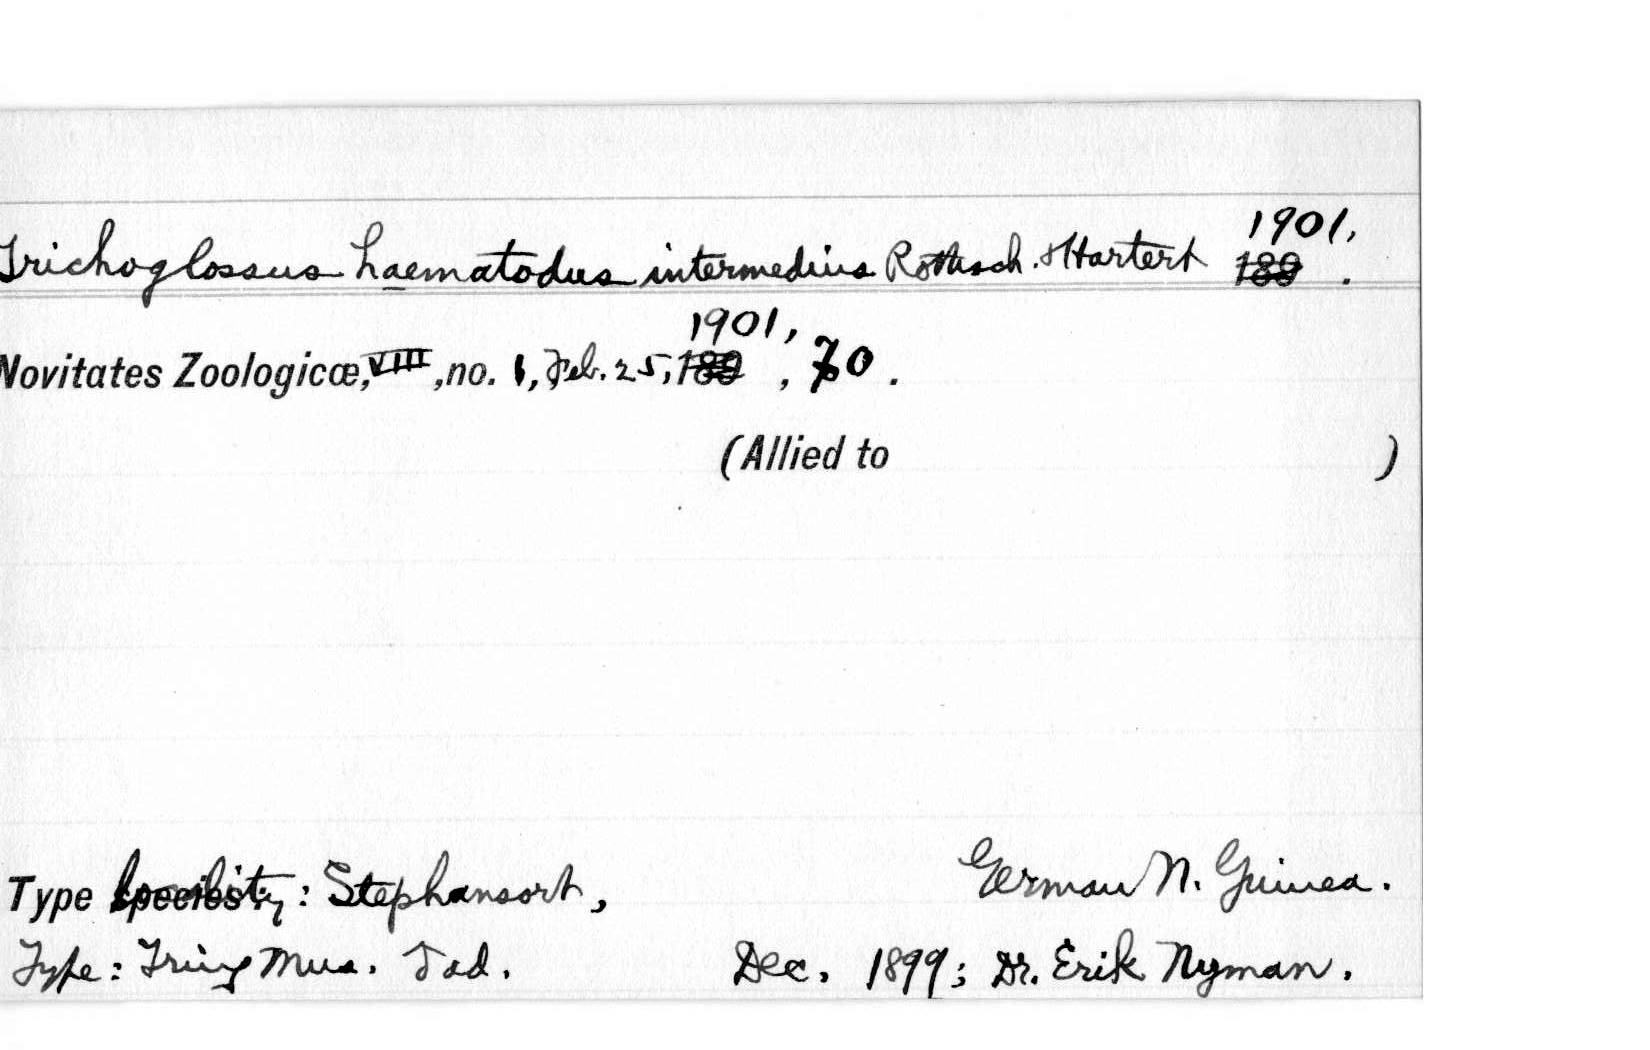 Trichoglossus haematodus intermedius Rothsch. & Hartert 1901, 189 .
Novitates Zoologicæ, VIII, no. 1, Feb. 25, 189 1901, , 70 .
(Allied to )
Type species locality : Stephansort, German N. Guinea.
Type: Tring Mus. ad. Dec. 1899; Dr. Erik Nyman.